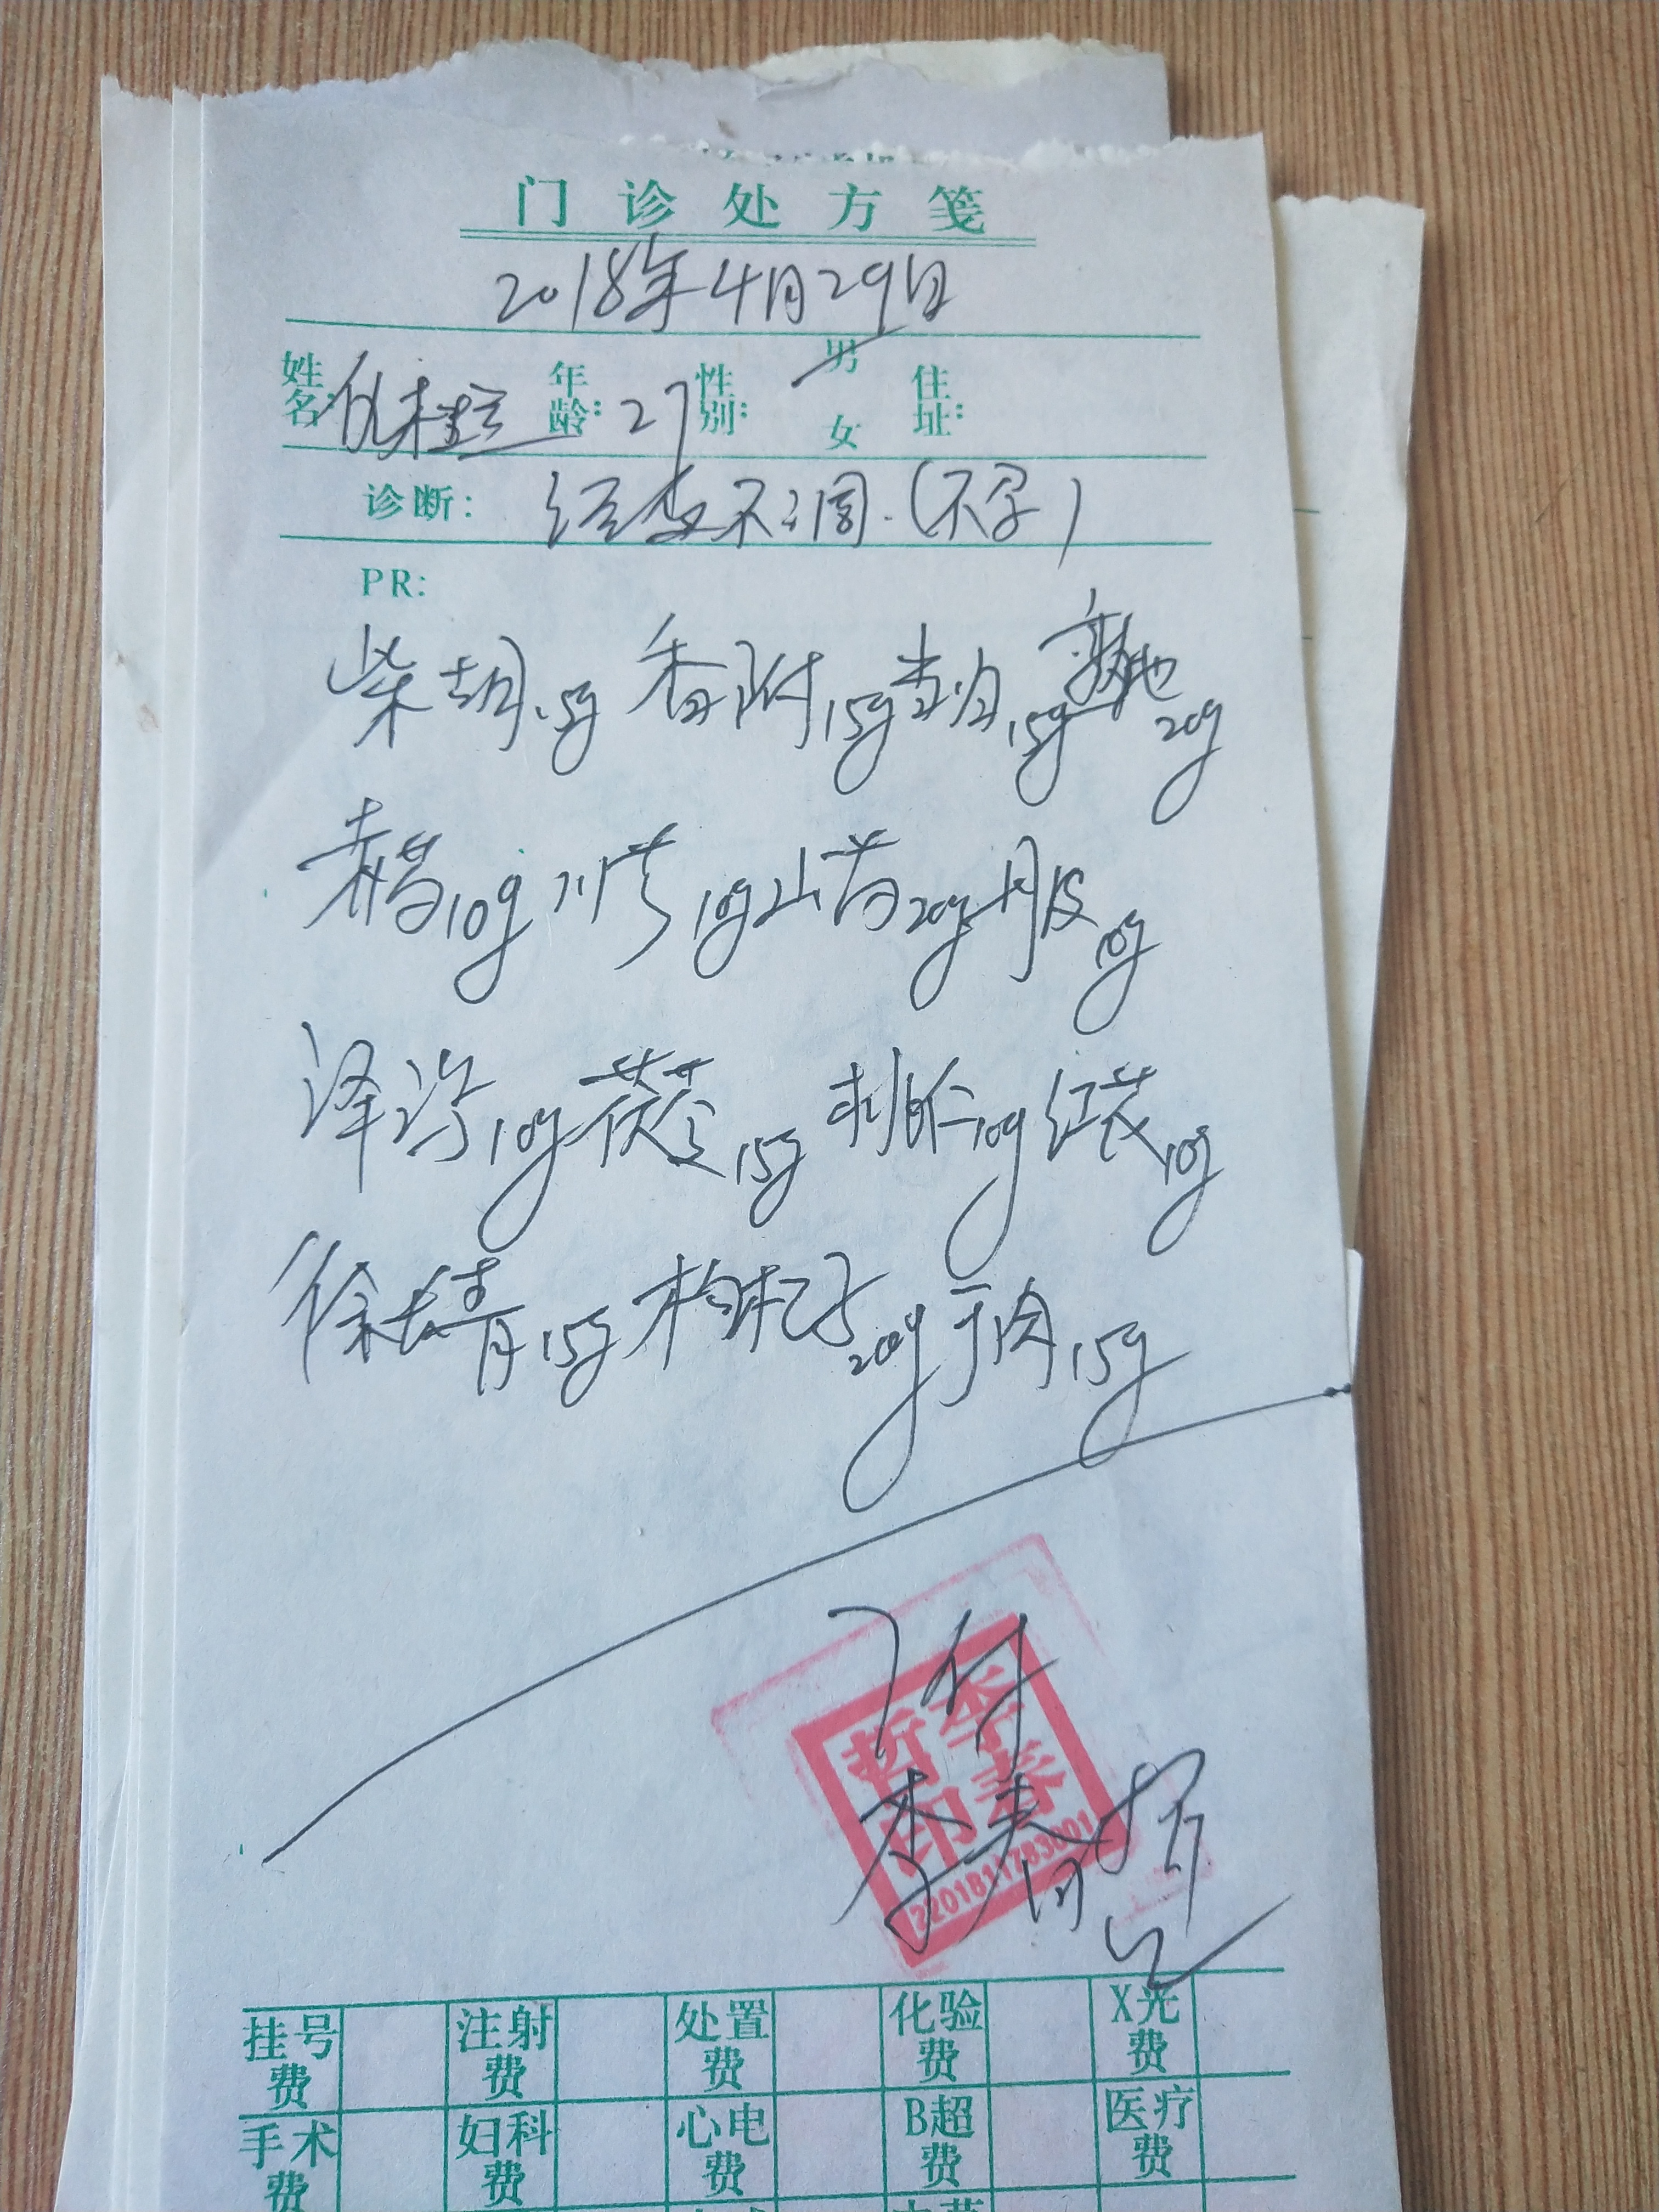 门诊处方笺
2018年4月29日
姓名: 年龄: 27 性别: 男 女 住址:
诊断: 经水不调.(不孕)
PR:
柴胡15g 香附15g 当归15g 熟地20g
赤芍10g 川芎10g 山药20g 丹皮10g
泽泻10g 茯苓15g 桃仁10g 红花10g
徐长青15g 枸杞子20g 于肉15g
7付
李春哲
李春哲印
2201811783001
挂号费 注射费 处置费 化验费 X光费
手术费 妇科费 心电费 B超费 医疗费